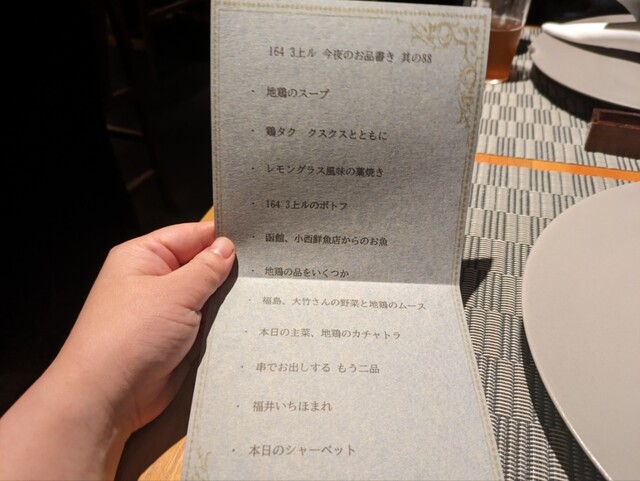 164 3上ル 今夜のお品書き 其の88
・ 地鶏のスープ
・ 鶏タク クスクスとともに
・ レモングラス風味の藁焼き
・ 164 3上ルのポトフ
・ 函館、小西鮮魚店からのお魚
・ 地鶏の品をいくつか
・ 福島、大竹さんの野菜と地鶏のムース
・ 本日の主菜、地鶏のカチャトラ
・ 串でお出しする もう二品
・ 福井いちほまれ
・ 本日のシャーベット